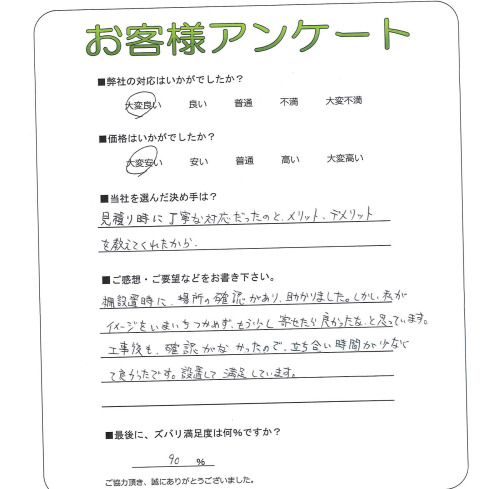 お客様アンケート
■弊社の対応はいかがでしたか？
大変良い 良い 普通 不満 大変不満
■価格はいかがでしたか？
大変安い 安い 普通 高い 大変高い
■当社を選んだ決め手は？
見積り時に丁寧な対応だったのと、メリット、デメリット
を教えてくれたから、
■ご感想・ご要望などをお書き下さい。
棚設置時に、場所の確認があり、助かりました。しかし、私が
イメージをいまいちつかめず、もう少し寄せたら良かったな、と思っています。
工事後も、確認がなかったので、立ち合い時間が少なく
て良かったです。設置して満足しています。
■最後に、ズバリ満足度は何％ですか？
90 ％
ご協力頂き、誠にありがとうございました。